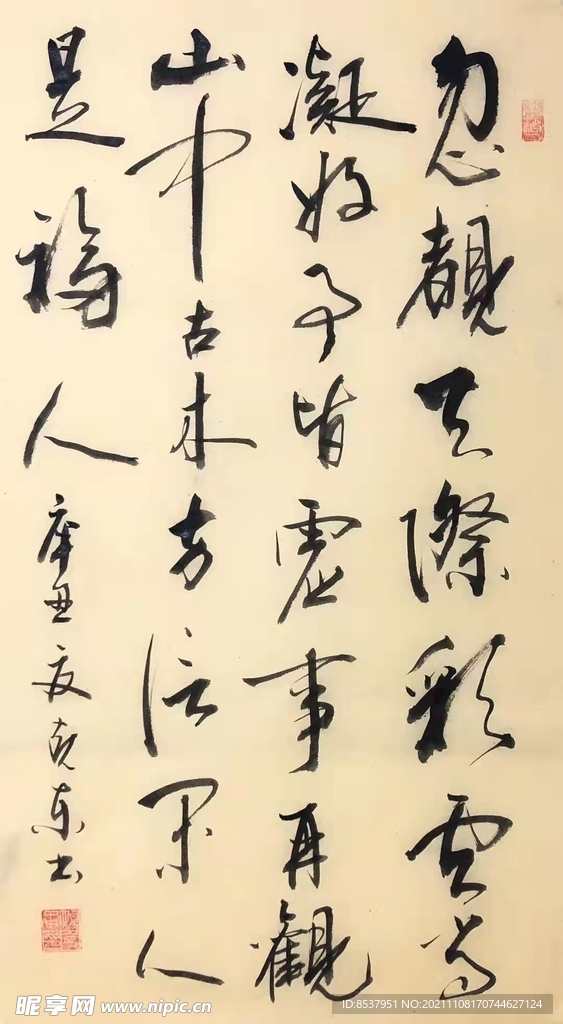 忽覩天際彩雲常
凝好事皆虛事再觀
山中古木方信閑人
是福人
辛丑夏克東書
昵享网 www.nipic.cn
ID:8537951 NO:20211108170744627124